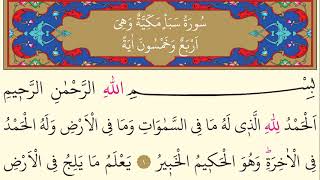 سُورَةُ سَبَأٍ مَكِّيَّةٌ وَهِيَ
اَرْبَعٌ وَخَمْسُونَ اٰيَةً
بِسْمِ اللّٰهِ الرَّحْمٰنِ الرَّحِيمِ
اَلْحَمْدُ لِلّٰهِ الَّذٖى لَهُ مَا فِى السَّمٰوَاتِ وَمَا فِى الْاَرْضِ وَلَهُ الْحَمْدُ
فِى الْاٰخِرَةِۜ وَهُوَ الْحَكٖيمُ الْخَبٖيرُ ١ يَعْلَمُ مَا يَلِجُ فِى الْاَرْضِ